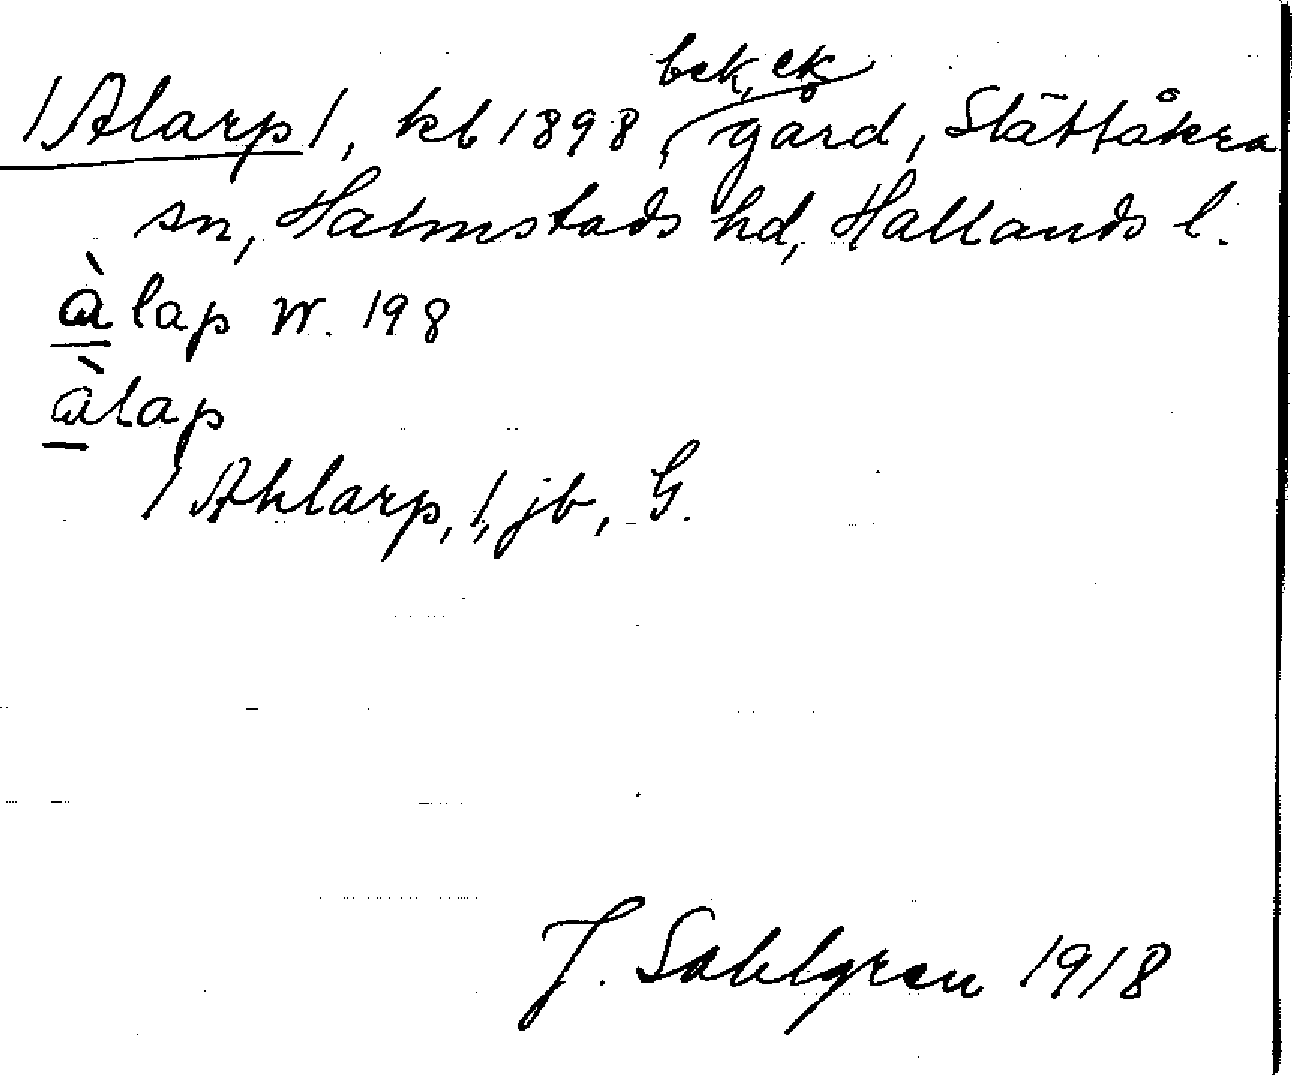 bck, ek
/Alarp/, kb 1898, gård, Slättåkra
sn, Halmstads hd, Hallands l.
àlap W. 198
àlap
/Ahlarp,/, jb, G.
J. Sahlgren 1918